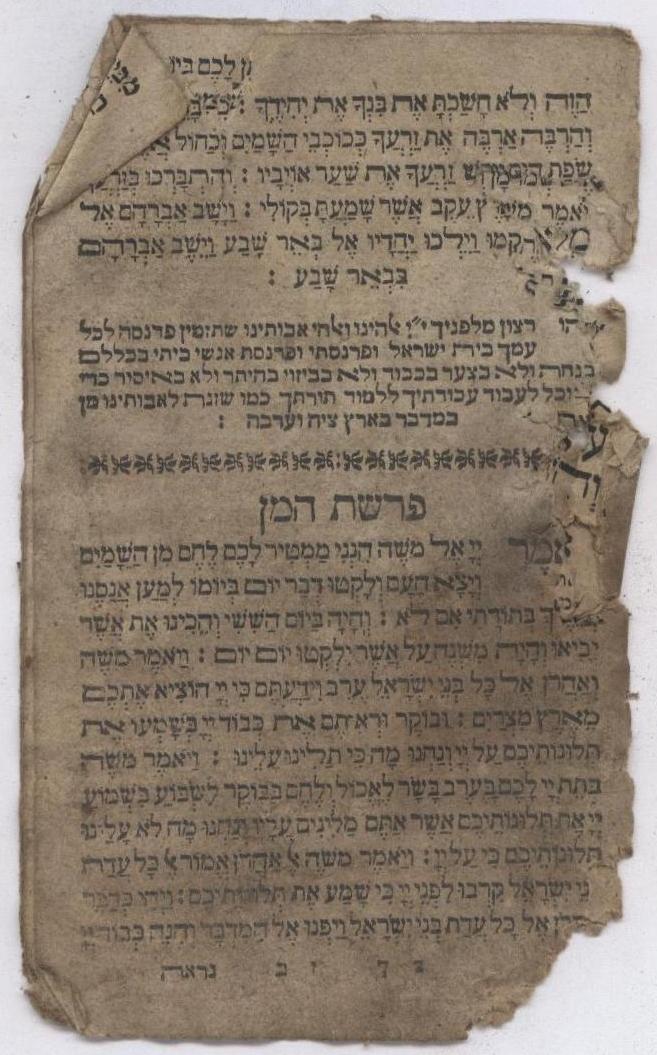 לָכֶם בְּיוֹ
הַזֶּה וְלֹא חָשַׂכְתָּ אֶת בִּנְךָ אֶת יְחִידֶךָ :
וְהַרְבָּה אַרְבֶּה אֶת זַרְעֲךָ כְּכוֹכְבֵי הַשָּׁמַיִם וְכַחוֹל
שְׂפַת זַרְעֲךָ אֶת שַׁעַר אוֹיְבָיו : וְהִתְבָּרְכוּ
עֵקֶב אֲשֶׁר שָׁמַעְתָּ בְּקוֹלִי : וַיָּשָׁב אַבְרָהָם אֶל
וַיֵּלְכוּ יַחְדָּיו אֶל בְּאֵר שָׁבַע וַיֵּשֶׁב אַבְרָהָם
בִּבְאֵר שָׁבַע :
רצון מלפניך י״י אלהינו ואלהי אבותינו שתזמין פרנסה לכל
עמך בית ישראל ופרנסתי ופרנסת אנשי ביתי בכללם
בנחת ולא בצער בכבוד ולא בביזוי בהיתר ולא באיסור כדי
לעבוד עבודתיך ללמוד תורתך כמו שזנת לאבותינו מן
במדבר בארץ ציה וערבה :
פרשת המן
יְיָ אֶל מֹשֶׁה הִנְנִי מַמְטִיר לָכֶם לֶחֶם מִן הַשָּׁמַיִם
וְיָצָא הָעָם וְלָקְטוּ דְּבַר יוֹם בְּיוֹמוֹ לְמַעַן אֲנַסֶּנּוּ
בְּתוֹרָתִי אִם לֹא : וְהָיָה בַּיּוֹם הַשִּׁשִּׁי וְהֵכִינוּ אֶת אֲשֶׁר
יָבִיאוּ וְהָיָה מִשְׁנֶה עַל אֲשֶׁר יִלְקְטוּ יוֹם יוֹם : וַיֹּאמֶר מֹשֶׁה
וְאַהֲרֹן אֶל כָּל בְּנֵי יִשְׂרָאֵל עֶרֶב וִידַעְתֶּם כִּי יְיָ הוֹצִיא אֶתְכֶם
מֵאֶרֶץ מִצְרָיִם : וּבוֹקֶר וּרְאִיתֶם אֶת כְּבוֹד יְיָ בְּשָׁמְעוֹ אֶת
תְּלוּנוֹתֵיכֶם עַל יְיָ וְנַחְנוּ מָה כִּי תַלִּינוּ עָלֵינוּ : וַיֹּאמֶר מֹשֶׁה
בְּתֵת יְיָ לָכֶם בָּעֶרֶב בָּשָׂר לֶאֱכוֹל וְלֶחֶם בַּבּוֹקֶר לִשְׂבּוֹעַ בִּשְׁמוֹעַ
יְיָ אֶת תְּלוּנוֹתֵיכֶם אֲשֶׁר אַתֶּם מַלִּינִים עָלָיו וְנַחְנוּ מָה לֹא עָלֵינוּ
תְלוּנוֹתֵיכֶם כִּי עַל יְיָ : וַיֹּאמֶר מֹשֶׁה אַהֲרֹן אֱמוֹר כָּל עֲדַת
יִשְׂרָאֵל קִרְבוּ לִפְנֵי יְיָ כִּי שָׁמַע אֶת תְּלוּנוֹתֵיכֶם : וַיְהִי כְּדַבֵּר
אֶל כָּל עֲדַת בְּנֵי יִשְׂרָאֵל וַיִּפְנוּ אֶל הַמִּדְבָּר וְהִנֵּה כְּבוֹד יְיָ
נראה